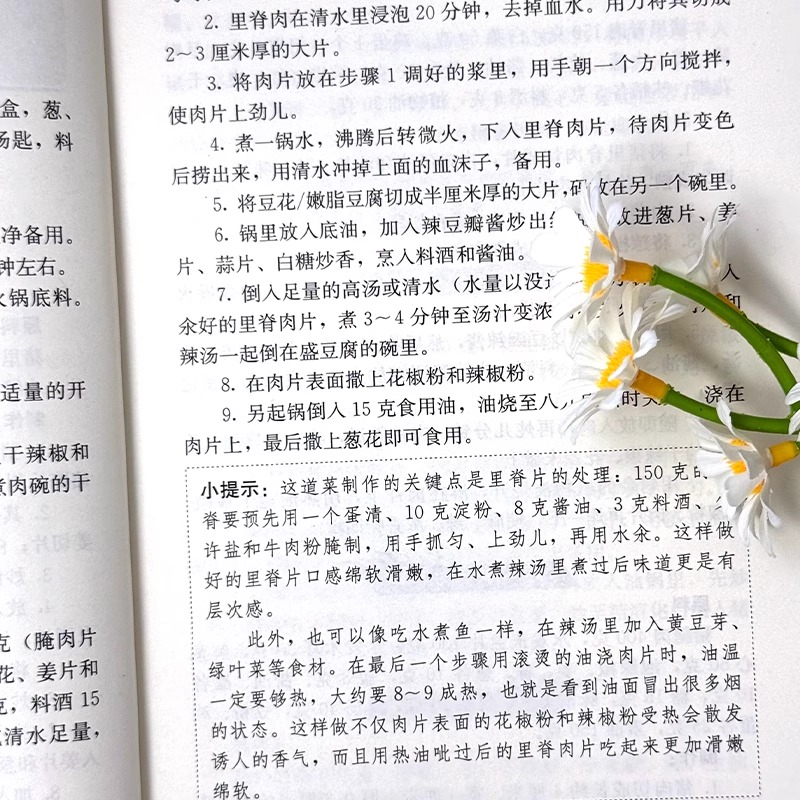 盒，葱、
汤匙，料
净备用。
钟左右。
火锅底料。
适量的开
干辣椒和
煮肉碗的干
克（腌肉片
花、姜片和
克，料酒 15
清水足量，
2. 里脊肉在清水里浸泡 20 分钟，去掉血水。用刀将其切成
2～3 厘米厚的大片。
3. 将肉片放在步骤 1 调好的浆里，用手朝一个方向搅拌，
使肉片上劲儿。
4. 煮一锅水，沸腾后转微火，下入里脊肉片，待肉片变色
后捞出来，用清水冲掉上面的血沫子，备用。
5. 将豆花/嫩脂豆腐切成半厘米厚的大片，码放在另一个碗里。
6. 锅里放入底油，加入辣豆瓣酱炒出 放进葱片、姜
片、蒜片、白糖炒香，烹入料酒和酱油。
7. 倒入足量的高汤或清水（水量以没过 人
汆好的里脊肉片，煮 3～4 分钟至汤汁变浓 和
辣汤一起倒在盛豆腐的碗里。
8. 在肉片表面撒上花椒粉和辣椒粉。
9. 另起锅倒入 15 克食用油，油烧至八 时 浇在
肉片上，最后撒上葱花即可食用。
小提示：这道菜制作的关键点是里脊片的处理：150 克的
脊要预先用一个蛋清、10 克淀粉、8 克酱油、3 克料酒、
许盐和牛肉粉腌制，用手抓匀、上劲儿，再用水汆。这样做
好的里脊片口感绵软滑嫩，在水煮辣汤里煮过后味道更是有
层次感。
此外，也可以像吃水煮鱼一样，在辣汤里加入黄豆芽、
绿叶菜等食材。在最后一个步骤用滚烫的油浇肉片时，油温
一定要够热，大约要 8～9 成热，也就是看到油面冒出很多烟
的状态。这样做不仅肉片表面的花椒粉和辣椒粉受热会散发
诱人的香气，而且用热油呲过后的里脊肉片吃起来更加滑嫩
绵软。